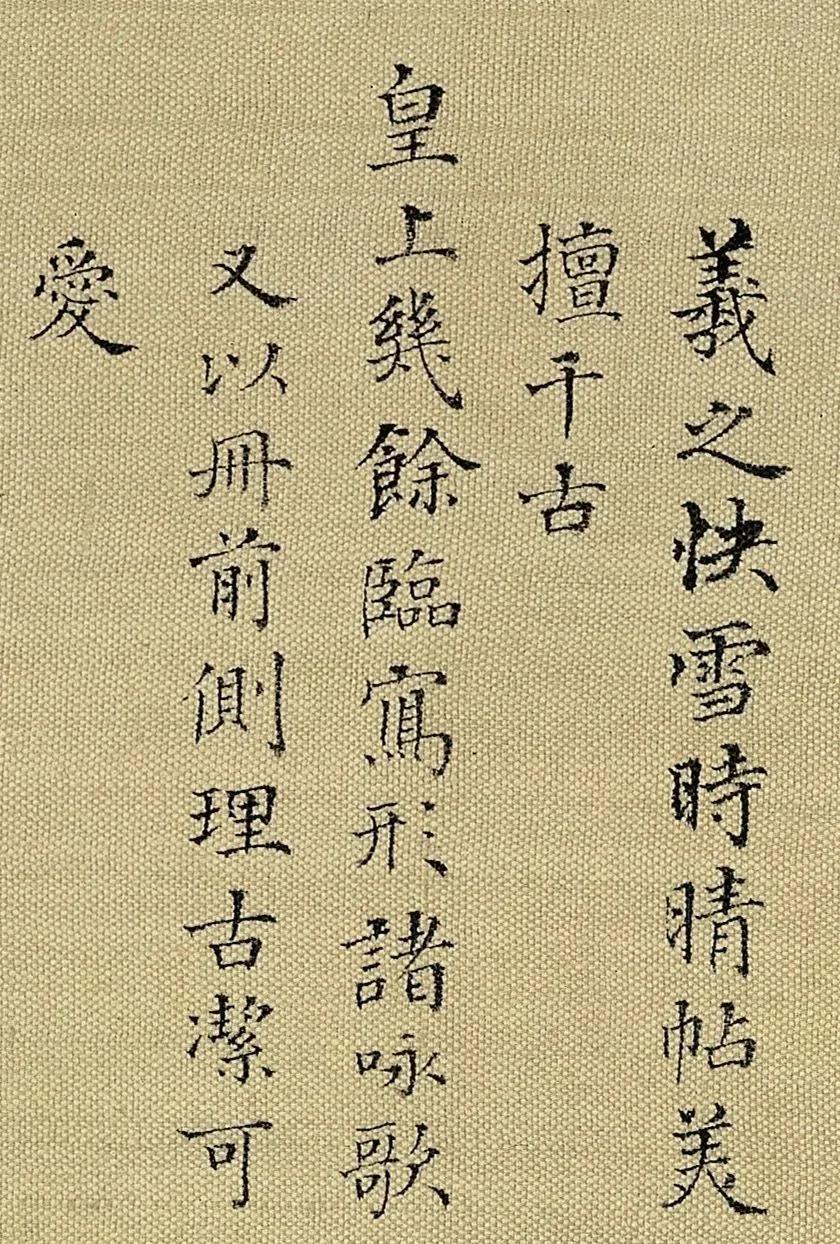 羲之快雪時晴帖美
擅千古
皇上幾餘臨寫形諸咏歌
又以冊前側理古潔可
愛